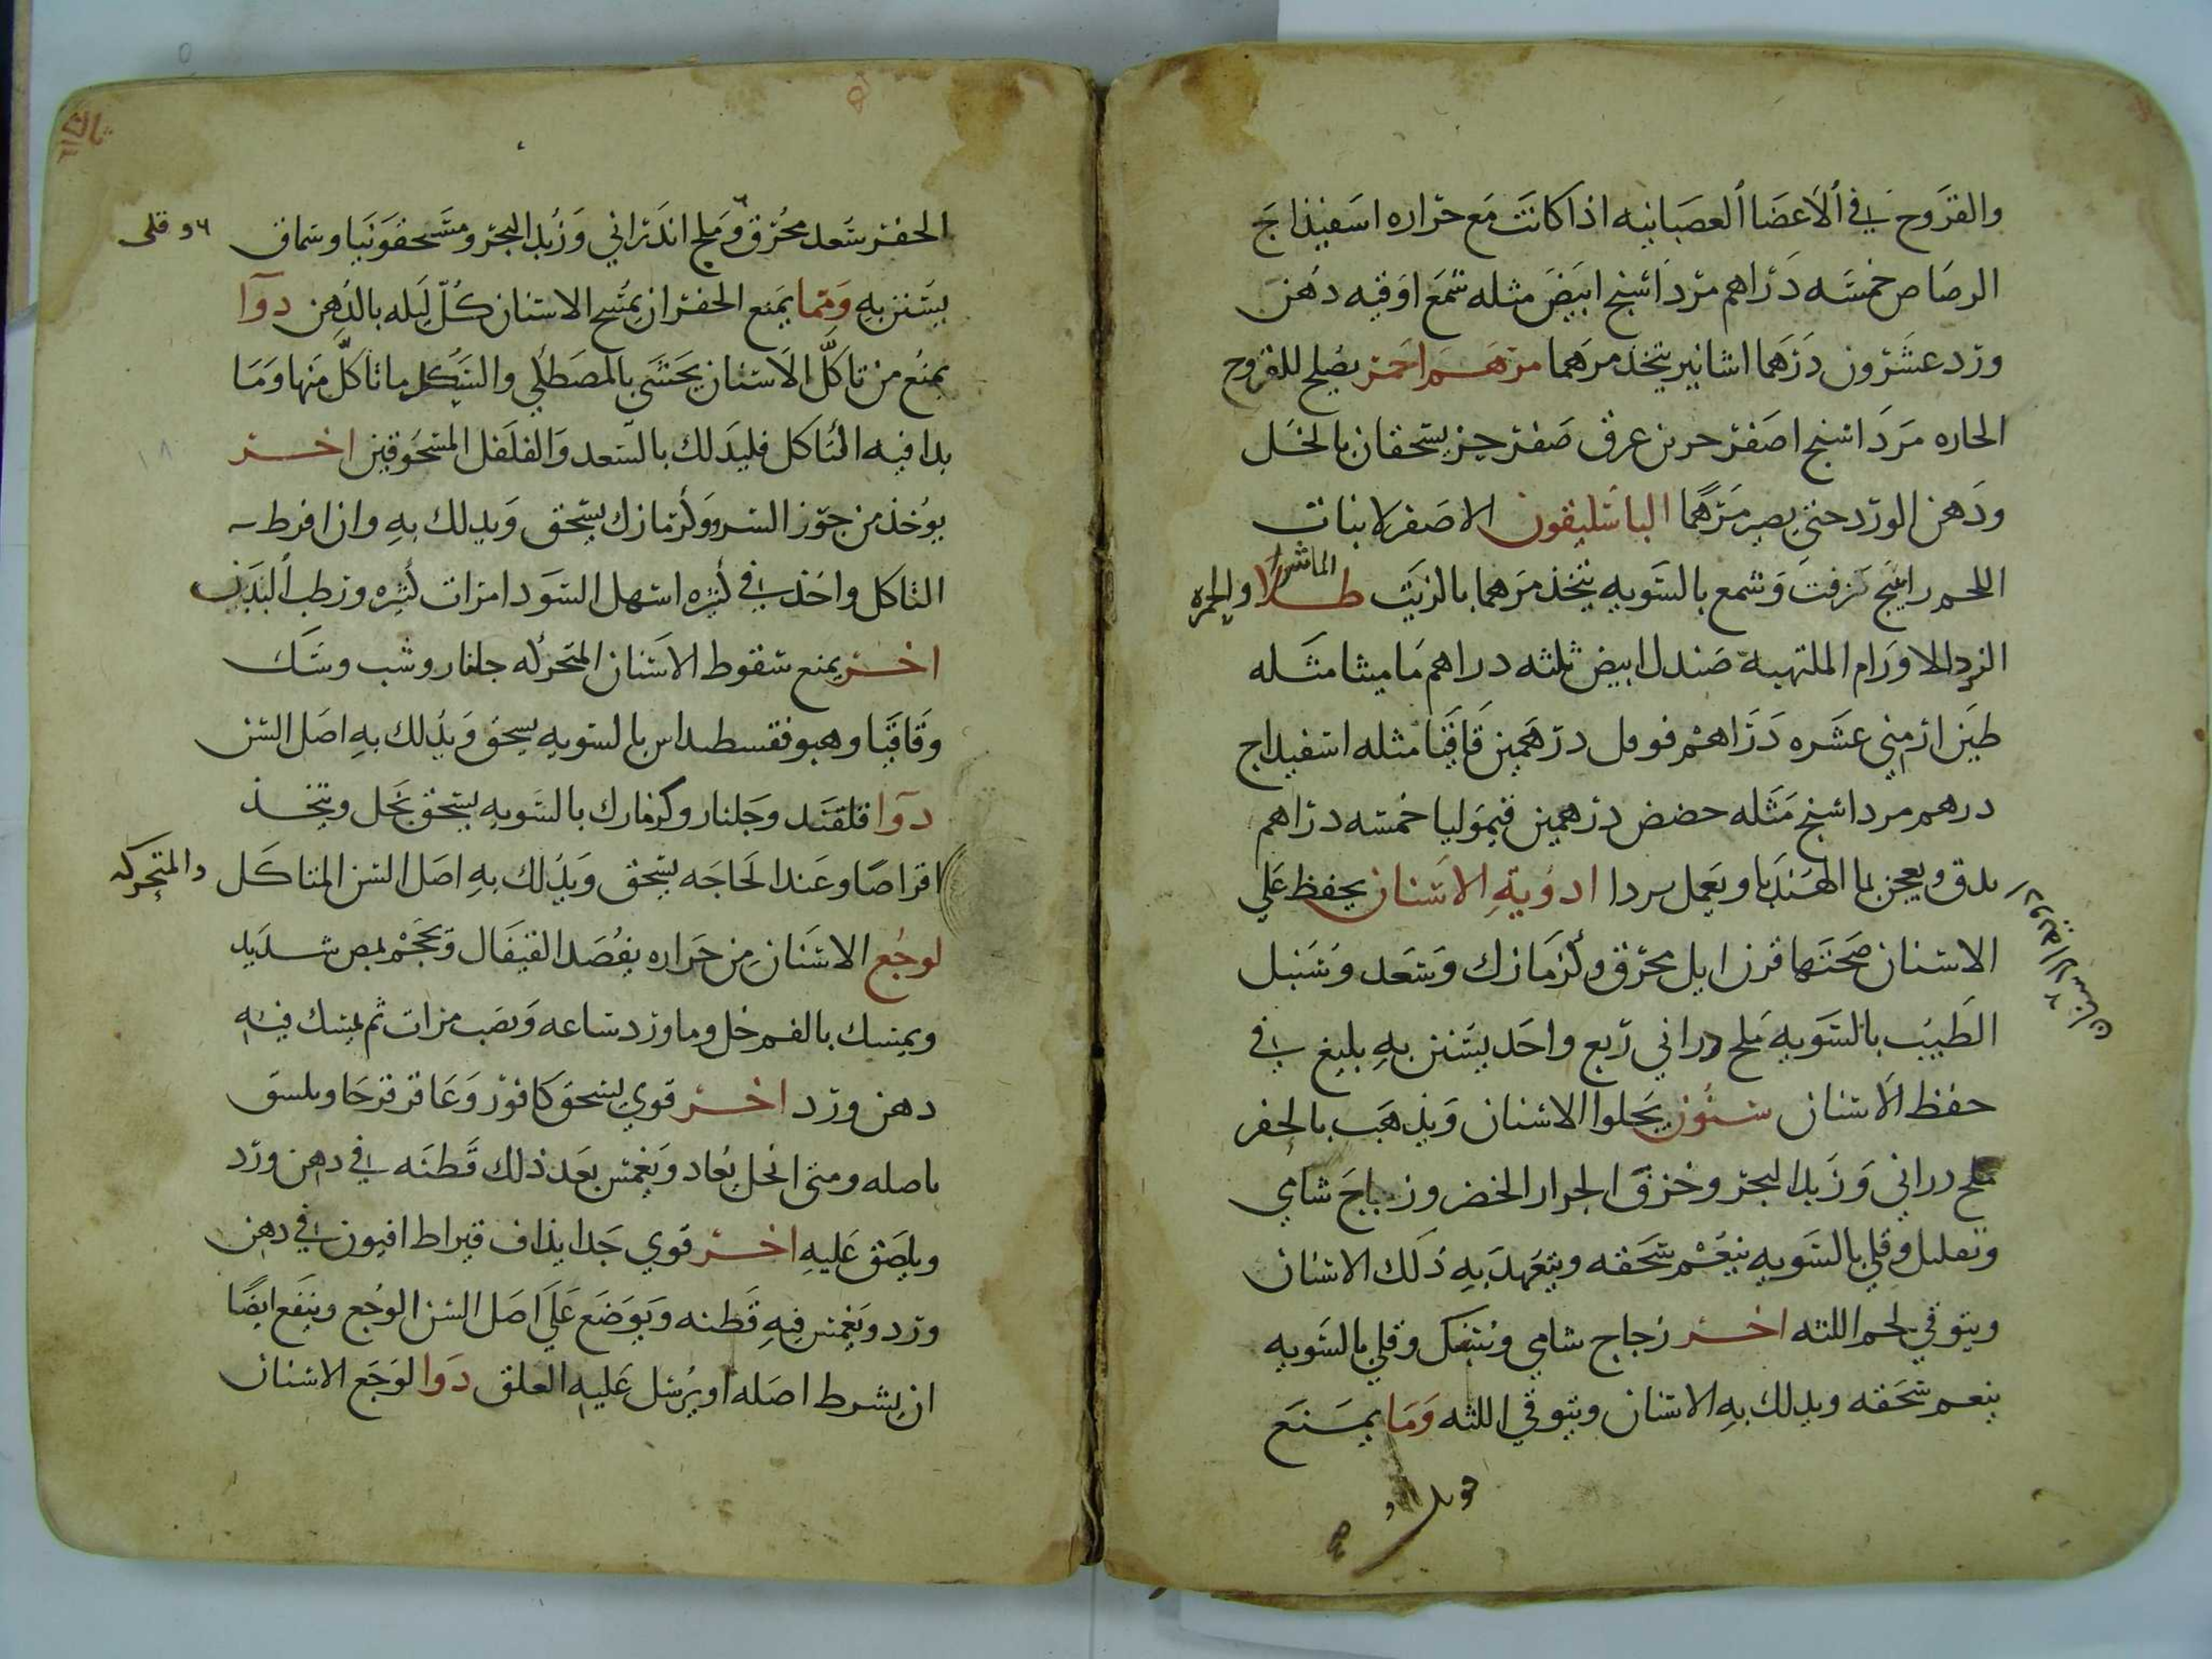 والقروح في الاعضا العصبانيه اذا كانت مع حراره اسفيذاج
الرصاص خمسه دراهم مرداسنج ابيض مثله شمع اوقيه دهن
ورد عشرون درهما اسانير يتخذ مرهما مرهم احمر يصلح للقروح
الحاره مرداسنج اصفر جزين عروق صفر جز يسحقان بالخل
ودهن الورد حتى يصير مرهما الباسليقون الاصفر لانبات
اللحم راتينج زفت وشمع بالسويه يتخذ مرهما بالزيت طلا الماشرا والحمره
الاورام الملتهبة صندل ابيض ثلثه دراهم ماميثا مثله
طين ارمني عشره دراهم فوفل درهمين قاقيا مثله اسفيداج
درهم مرداسنج مثله حضض درهمين قيموليا خمسه دراهم
يدق ويعجن بما الهندبا ويعمل ادوية الاسنان يحفظ على
الاسنان صحتها قرن ايل محرق وكزمازك وسعد وسنبل
الطيب بالسويه ملح دراني ربع واحد يستن به بليغ في
حفظ الاسنان سنون يجلوا الاسنان ويذهب بالحفر
ملح دراني وزبد البحر وخزف الجرار الخضر وزجاج شامي
وقلي بالسويه ينعم سحقه ويتعهد به ذلك الاسنان
ويتوقي لحم اللثه اخر زجاج شامي وقلي بالسويه
ينعم سحقه ويدلك به الاسنان ويتوقي اللثه وما يمنع
الحفر سعد محرق وملح اندراني وزبد البحر وسماق
وقلى
يستن به ومما يمنع الحفر ان يمسح الاسنان كل ليله بالدهن دوآ
يمنع من تاكل الاسنان يحشى بالمصطكي والسك ما تاكل منها وما
بدا فيه التاكل فليدلك بالسعد والفلفل المسحوقين اخر
يوخذ من جوز السرو وكزمازك يسحق ويدلك به وان افرط
التاكل واخذ في كثره اسهل السودا مرات كثره ورطب البدن
اخر يمنع سقوط الاسنان المتحركه جلنار وشب وسك
وقاقيا وهيوفقسطيداس بالسويه يسحق ويدلك به اصل السن
دوآ قلقند وجلنار وكزمازك بالسويه يسحق بخل ويتخذ
اقراصا وعند الحاجه يسحق ويدلك به اصل السن المتاكل
والمتحركه
لوجع الاسنان من حراره يفصد القيفال ويحجم بمص شديد
ويمسك بالفم خل وما ورد ساعه ويصب مرات ثم يمسك فيه
دهن ورد اخر قوي يسحق كافور وعاقر قرحا ويلسق
باصله ومتى انحل يعاد ويغمس بعد ذلك قطنه في دهن ورد
ويلصق عليه اخر قوي جدا يذاف قيراط افيون في دهن
ورد ويغمس فيه قطنه ويوضع على اصل السن الوجع وينفع ايضا
ان يشرط اصله او يرسل عليه العلق دوا لوجع الاسنان